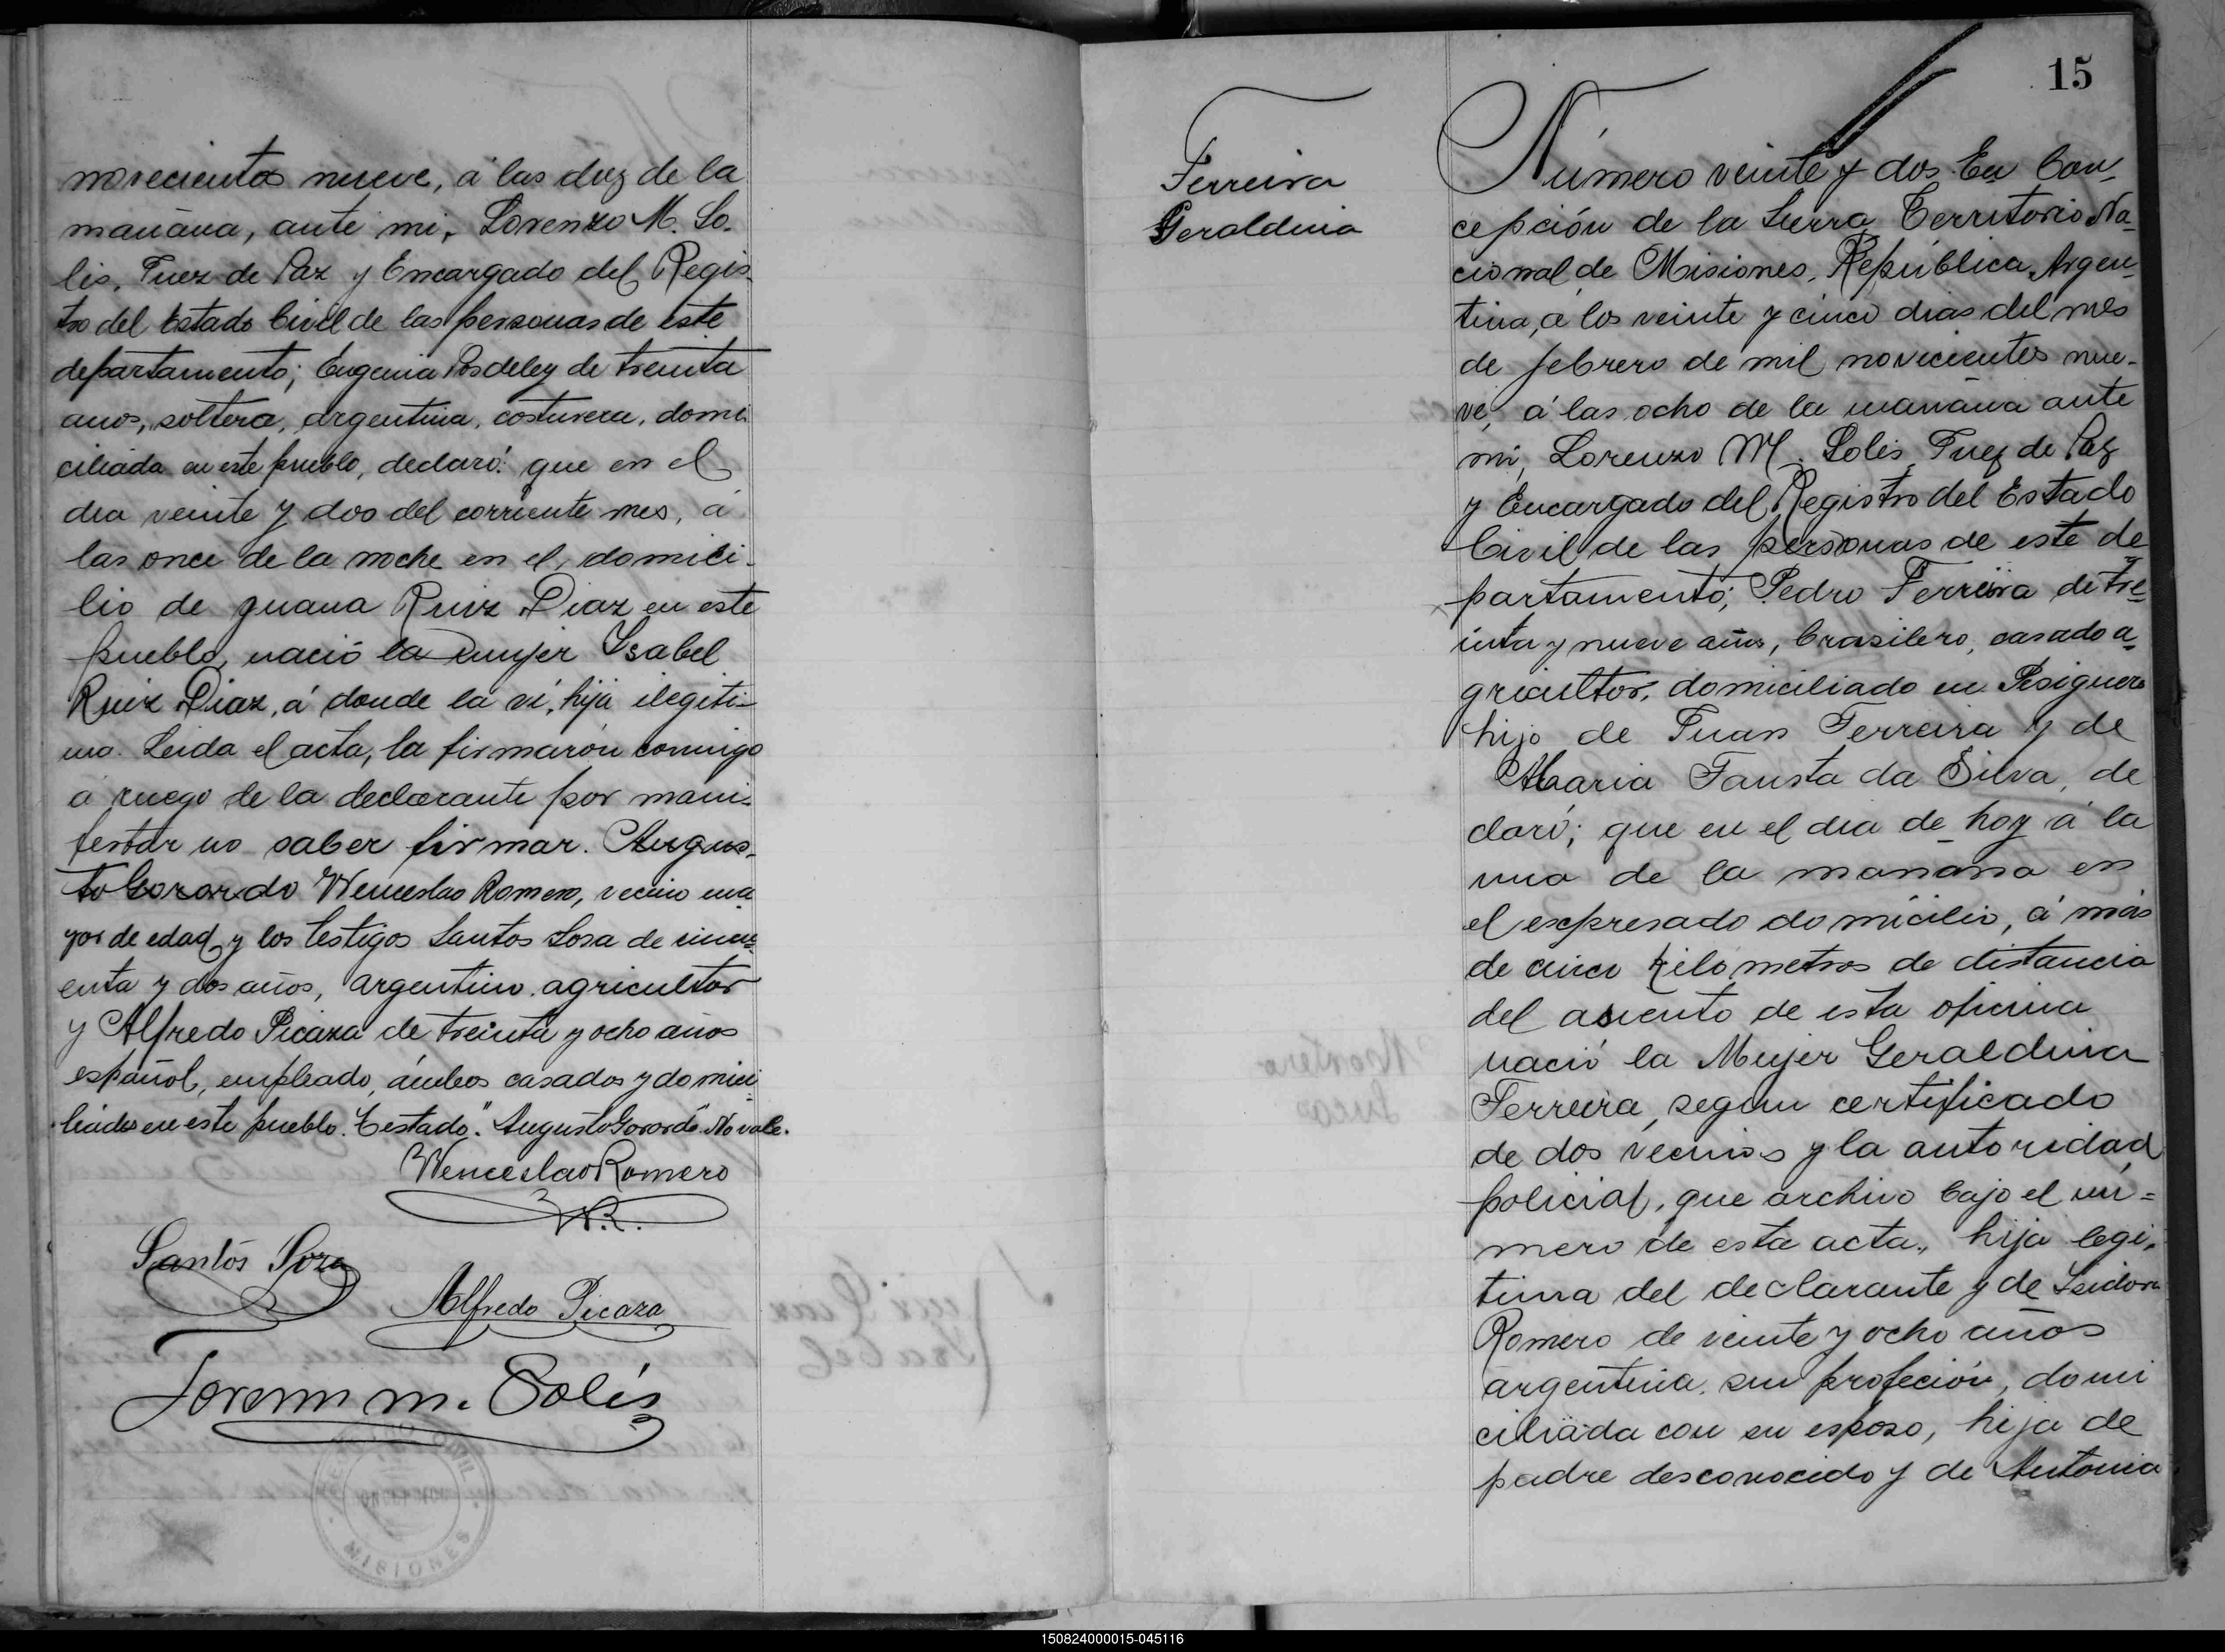 novecientos nueve, á las diez de la
mañana, ante mi, Lorenzo M. So-
lis, Juez de Paz y Encargado del Regis-
tro del Estado Civil de las personas de este
departamento; Eugenia de treinta
anos, soltera, argentina, costurera, domi
ciliada en este pueblo, declaró: que en el
dia veinte y dos del corriente mes, á
las once de la noche en el, domici-
lio de Juana Ruiz Diaz en este
pueblo, nació la mujer Ysabel
Ruiz Diaz, á donde la vi, hija ilegiti-
ma. Leida el acta, la firmarón conmigo
á ruego de la declarante por mani-
festar no saber firmar. Augus-
to Gorordo Wenceslao Romero, vecino ma
yor de edad, y los testigos Santos Sosa de cincu
enta y dos años, argentino agricultor
y Alfredo Picaza de treinta y ocho años
español, empleado, ámbos casados y domici
liados en este pueblo. Testado: "Augusto Gorordo" No vale.
Wenceslao Romero
W.R.
Santos Soza
Alfredo Picaza
Lorenzo M. Solis
REGISTRO CIVIL
CONCEPCION
MISIONES
15
Ferreira
Geraldina
Número veinte y dos. En Con-
cepción de la Sierra Territorio Na-
cional de Misiones, República Argen-
tina, á los veinte y cinco dias del mes
de febrero de mil novecientos nue-
ve, á las ocho de la mañana ante
mi, Lorenzo M. Solis Juez de Paz
y Encargado del Registro del Estado
Civil de las personas de este de
partamento; Pedro Ferreira de tre-
inta y nueve años, brasilero, casado a-
gricultor, domiciliado en Persiguero
hijo de Juan Ferreira y de
Maria Fausta da Silva, de
claró; que en el dia de hoy á la
una de la mañana en
el expresado domicilio, á más
de cinco kilómetros de distancia
del asiento de esta oficina
nació la Mujer Geraldina
Ferreira, segun certificado
de dos vecinos y la autoridad
policial, que archivo bajo el nú=
mero de esta acta, hija legi-
tima del declarante y de Isidora
Romero de veinte y ocho años
argentina, sin profeción, domi
ciliada con su esposo, hija de
padre desconocido y de Antonia
150824000015-045116